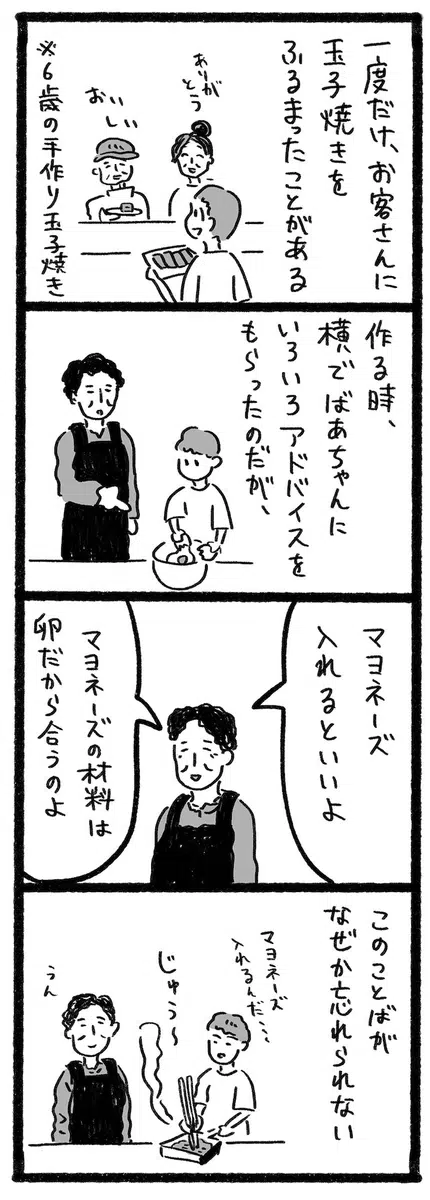 一度だけ、お客さんに
玉子焼きを
ふるまったことがある
ありが
とう
おい
しい
※6歳の手作り玉子焼き
作る時、
横でばあちゃんに
いろいろアドバイスを
もらったのだが、
マヨネーズ
入れるといいよ
マヨネーズの材料は
卵だから合うのよ
このことばが
なぜか忘れられない
マヨネーズ
入れるんだ…
じゅう〜
うん